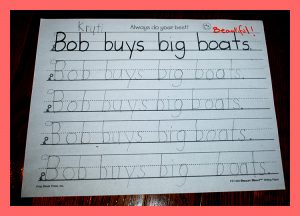 Always do your best! Beautiful!
Bob buys big boats.
Bob buys big boats.
Bob buys big boats.
Bob buys big boats.
Bob buys big boats.